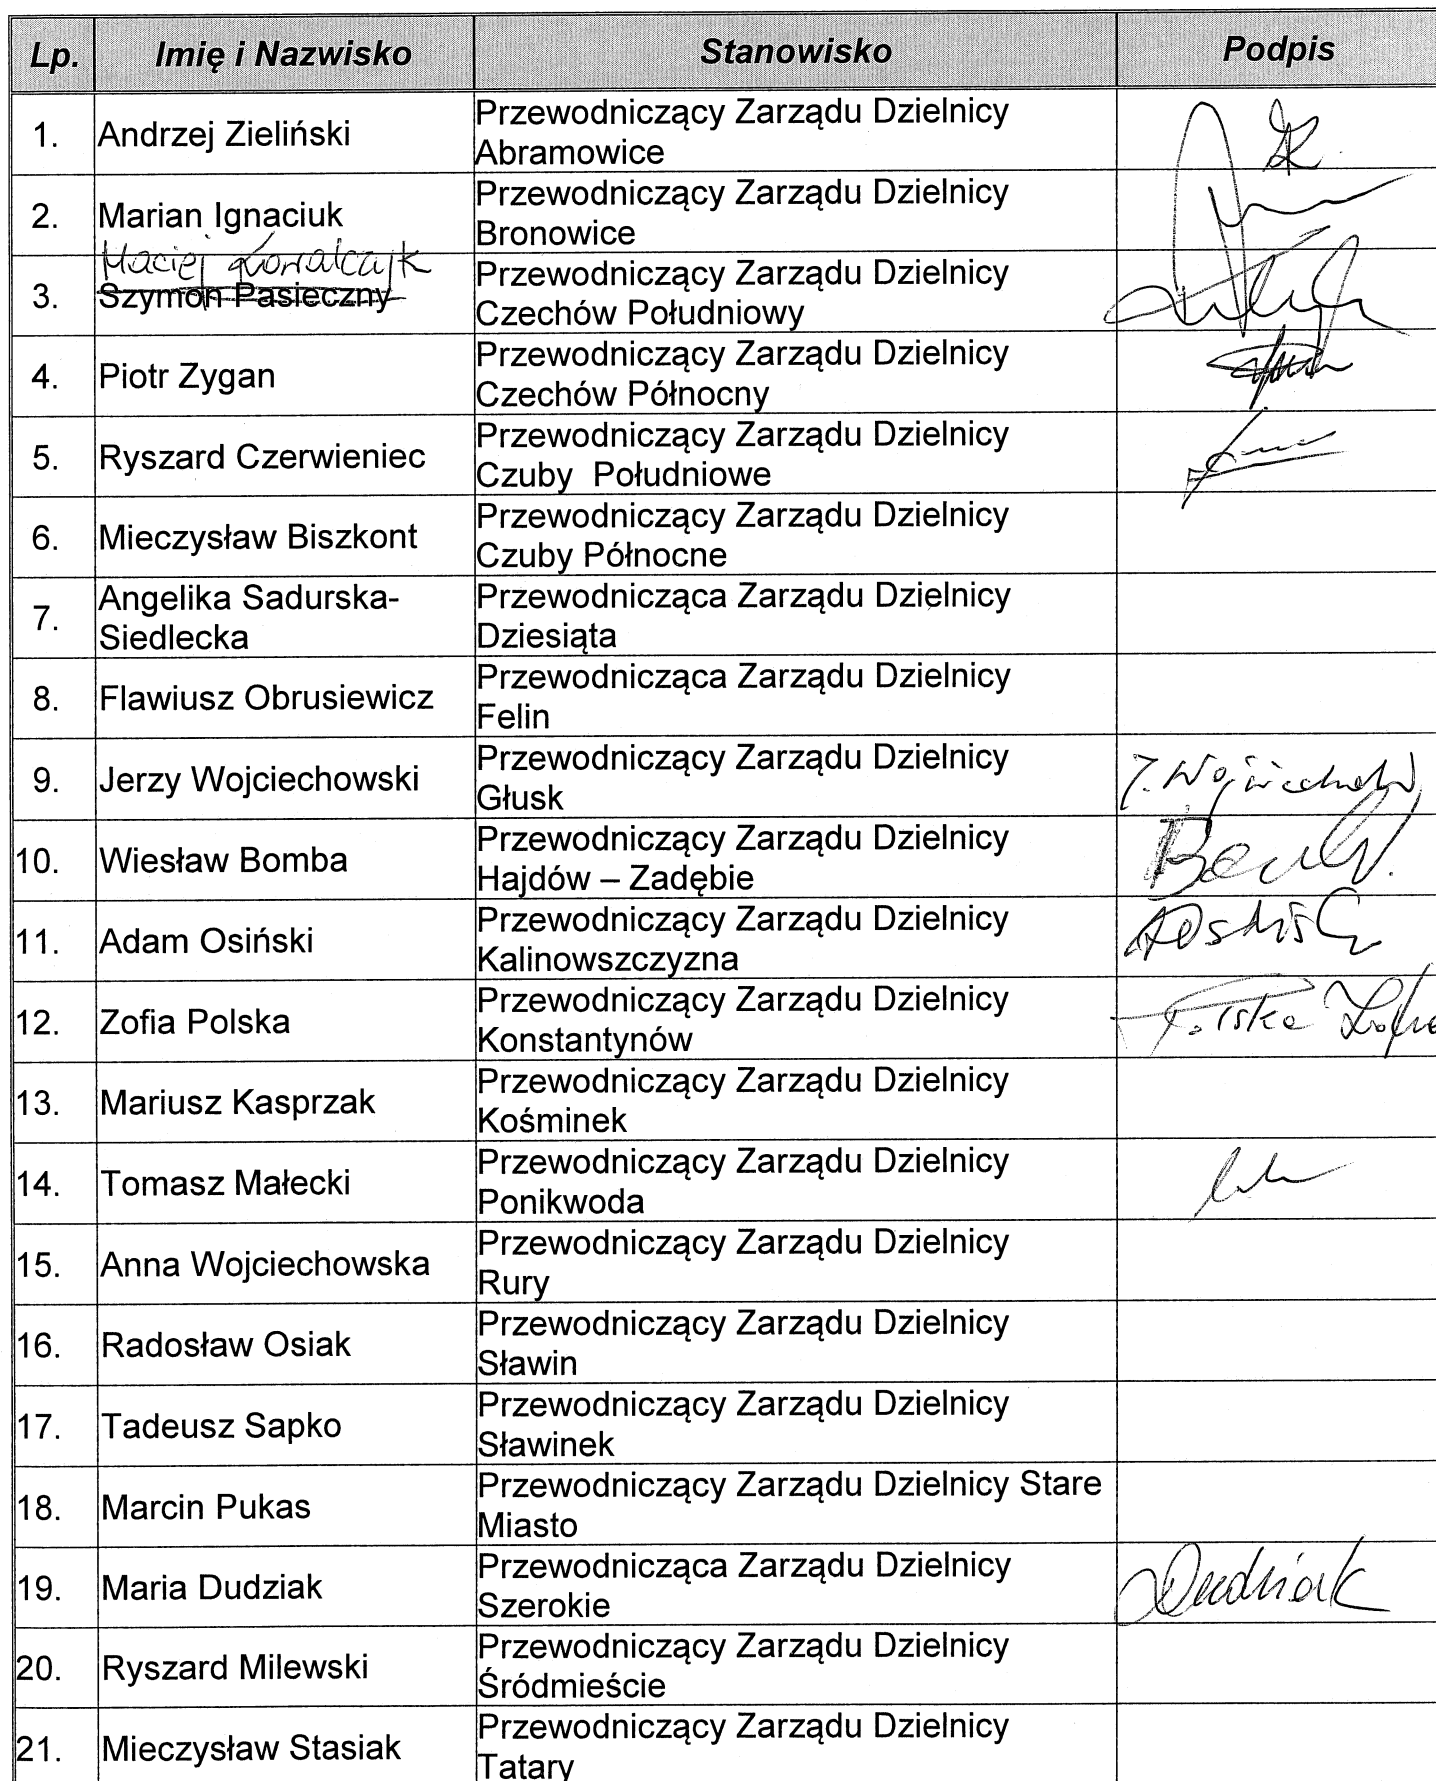 Lp. Imię i Nazwisko Stanowisko Podpis
1. Andrzej Zieliński Przewodniczący Zarządu Dzielnicy
Abramowice
2. Marian Ignaciuk Przewodniczący Zarządu Dzielnicy
Bronowice
Maciej Kowalczyk
3. Szymon Pasieczny Przewodniczący Zarządu Dzielnicy
Czechów Południowy
4. Piotr Zygan Przewodniczący Zarządu Dzielnicy
Czechów Północny
5. Ryszard Czerwieniec Przewodniczący Zarządu Dzielnicy
Czuby Południowe
6. Mieczysław Biszkont Przewodniczący Zarządu Dzielnicy
Czuby Północne
7. Angelika Sadurska-
Siedlecka Przewodnicząca Zarządu Dzielnicy
Dziesiąta
8. Flawiusz Obrusiewicz Przewodnicząca Zarządu Dzielnicy
Felin
9. Jerzy Wojciechowski Przewodniczący Zarządu Dzielnicy
Głusk
10. Wiesław Bomba Przewodniczący Zarządu Dzielnicy
Hajdów – Zadębie
11. Adam Osiński Przewodniczący Zarządu Dzielnicy
Kalinowszczyzna
12. Zofia Polska Przewodniczący Zarządu Dzielnicy
Konstantynów
13. Mariusz Kasprzak Przewodniczący Zarządu Dzielnicy
Kośminek
14. Tomasz Małecki Przewodniczący Zarządu Dzielnicy
Ponikwoda
15. Anna Wojciechowska Przewodniczący Zarządu Dzielnicy
Rury
16. Radosław Osiak Przewodniczący Zarządu Dzielnicy
Sławin
17. Tadeusz Sapko Przewodniczący Zarządu Dzielnicy
Sławinek
18. Marcin Pukas Przewodniczący Zarządu Dzielnicy Stare
Miasto
19. Maria Dudziak Przewodnicząca Zarządu Dzielnicy
Szerokie Dudziak
20. Ryszard Milewski Przewodniczący Zarządu Dzielnicy
Śródmieście
21. Mieczysław Stasiak Przewodniczący Zarządu Dzielnicy
Tatary